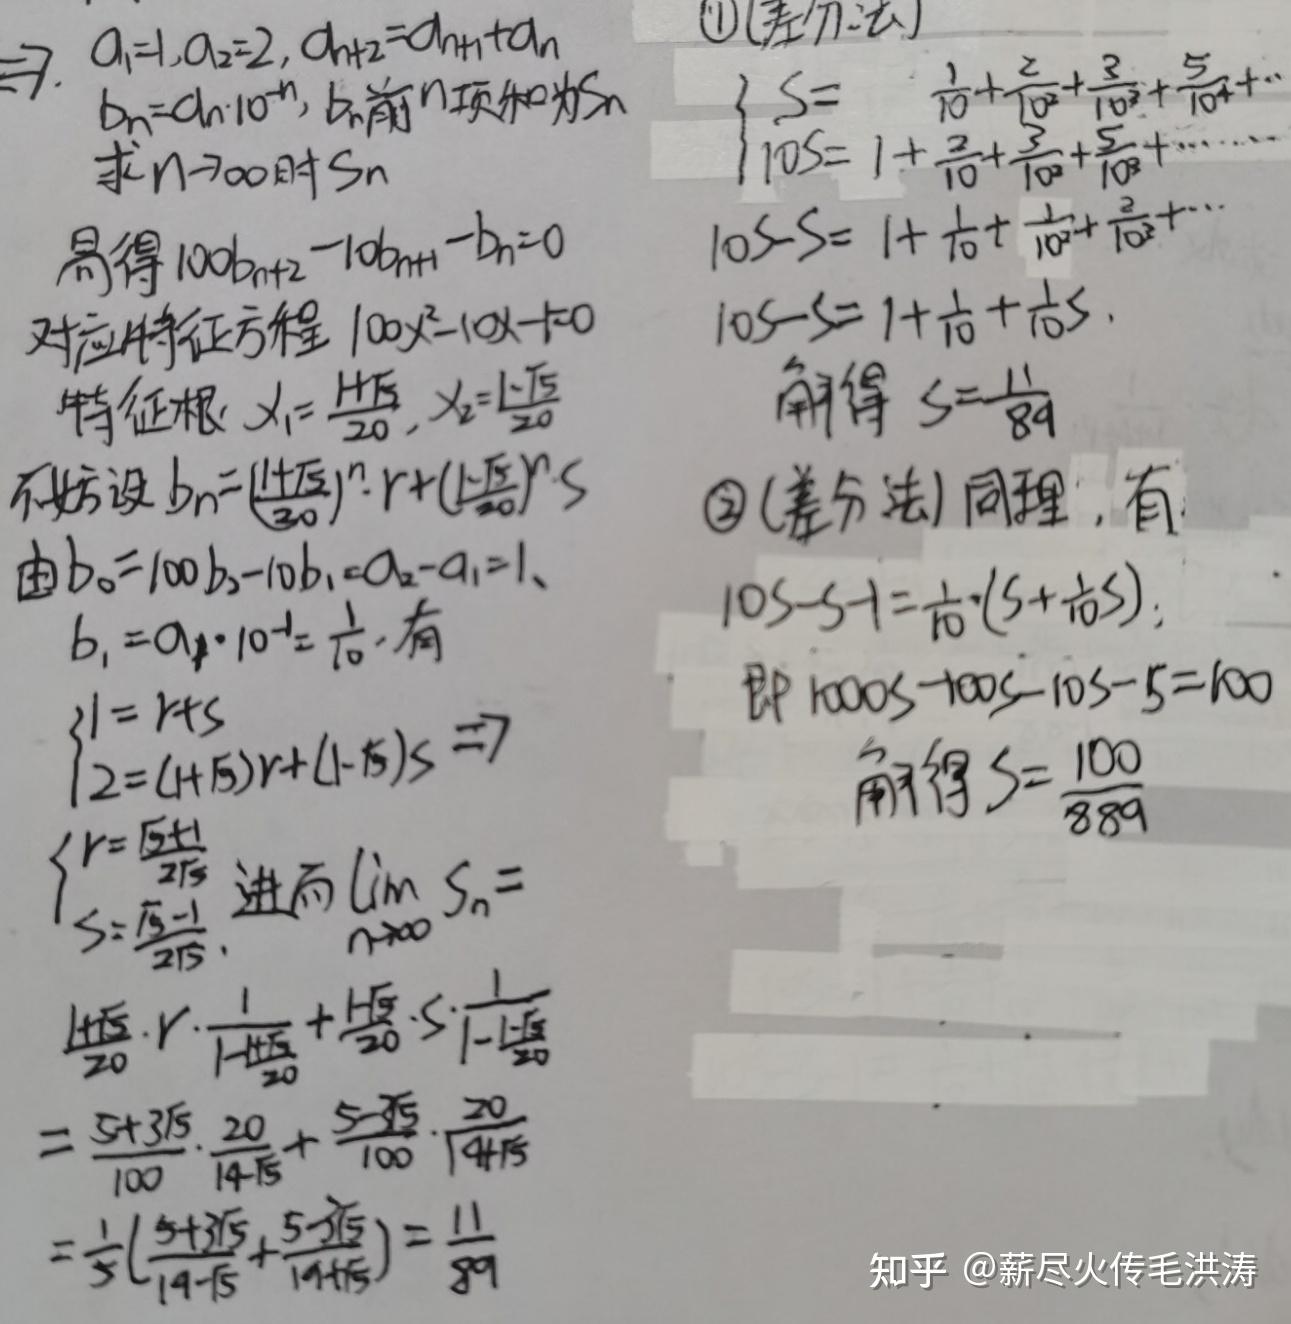 ⇒. a₁=1, a₂=2, aₙ₊₂=aₙ₊₁+aₙ
bₙ=aₙ·10⁻ⁿ, bₙ前n项和为Sₙ
求n→∞时Sₙ
易得100bₙ₊₂-10bₙ₊₁-bₙ=0
对应特征方程 100x²-10x-1=0
特征根 x₁=(1+√5)/20, x₂=(1-√5)/20
不妨设 bₙ=((1+√5)/20)ⁿ·r+((1-√5)/20)ⁿ·s
由b₀=100b₂-10b₁=a₂-a₁=1、
b₁=a₁·10⁻¹=1/10, 有
{1=r+s
2=(1+√5)r+(1-√5)s ⇒
{r=(√5+1)/(2√5)
s=(√5-1)/(2√5), 进而 lim n→∞ Sₙ=
(1+√5)/20·r·1/(1-(1+√5)/20)+(1-√5)/20·s·1/(1-(1-√5)/20)
=(5+3√5)/100·20/(19-√5)+(5-3√5)/100·20/(19+√5)
=1/5((5+3√5)/(19-√5)+(5-3√5)/(19+√5))=11/89
①(差分法)
{S=1/10+2/10²+3/10³+5/10⁴+…
10S=1+2/10+3/10²+5/10³+……
10S-S=1+1/10+1/10²+2/10³+…
10S-S=1+1/10+1/10S.
解得 S=11/89
②(差分法)同理, 有
10S-S-1=1/10·(S+1/10S),
即 1000S-100S-10S-S=100
解得 S=100/889
知乎 @薪尽火传毛洪涛